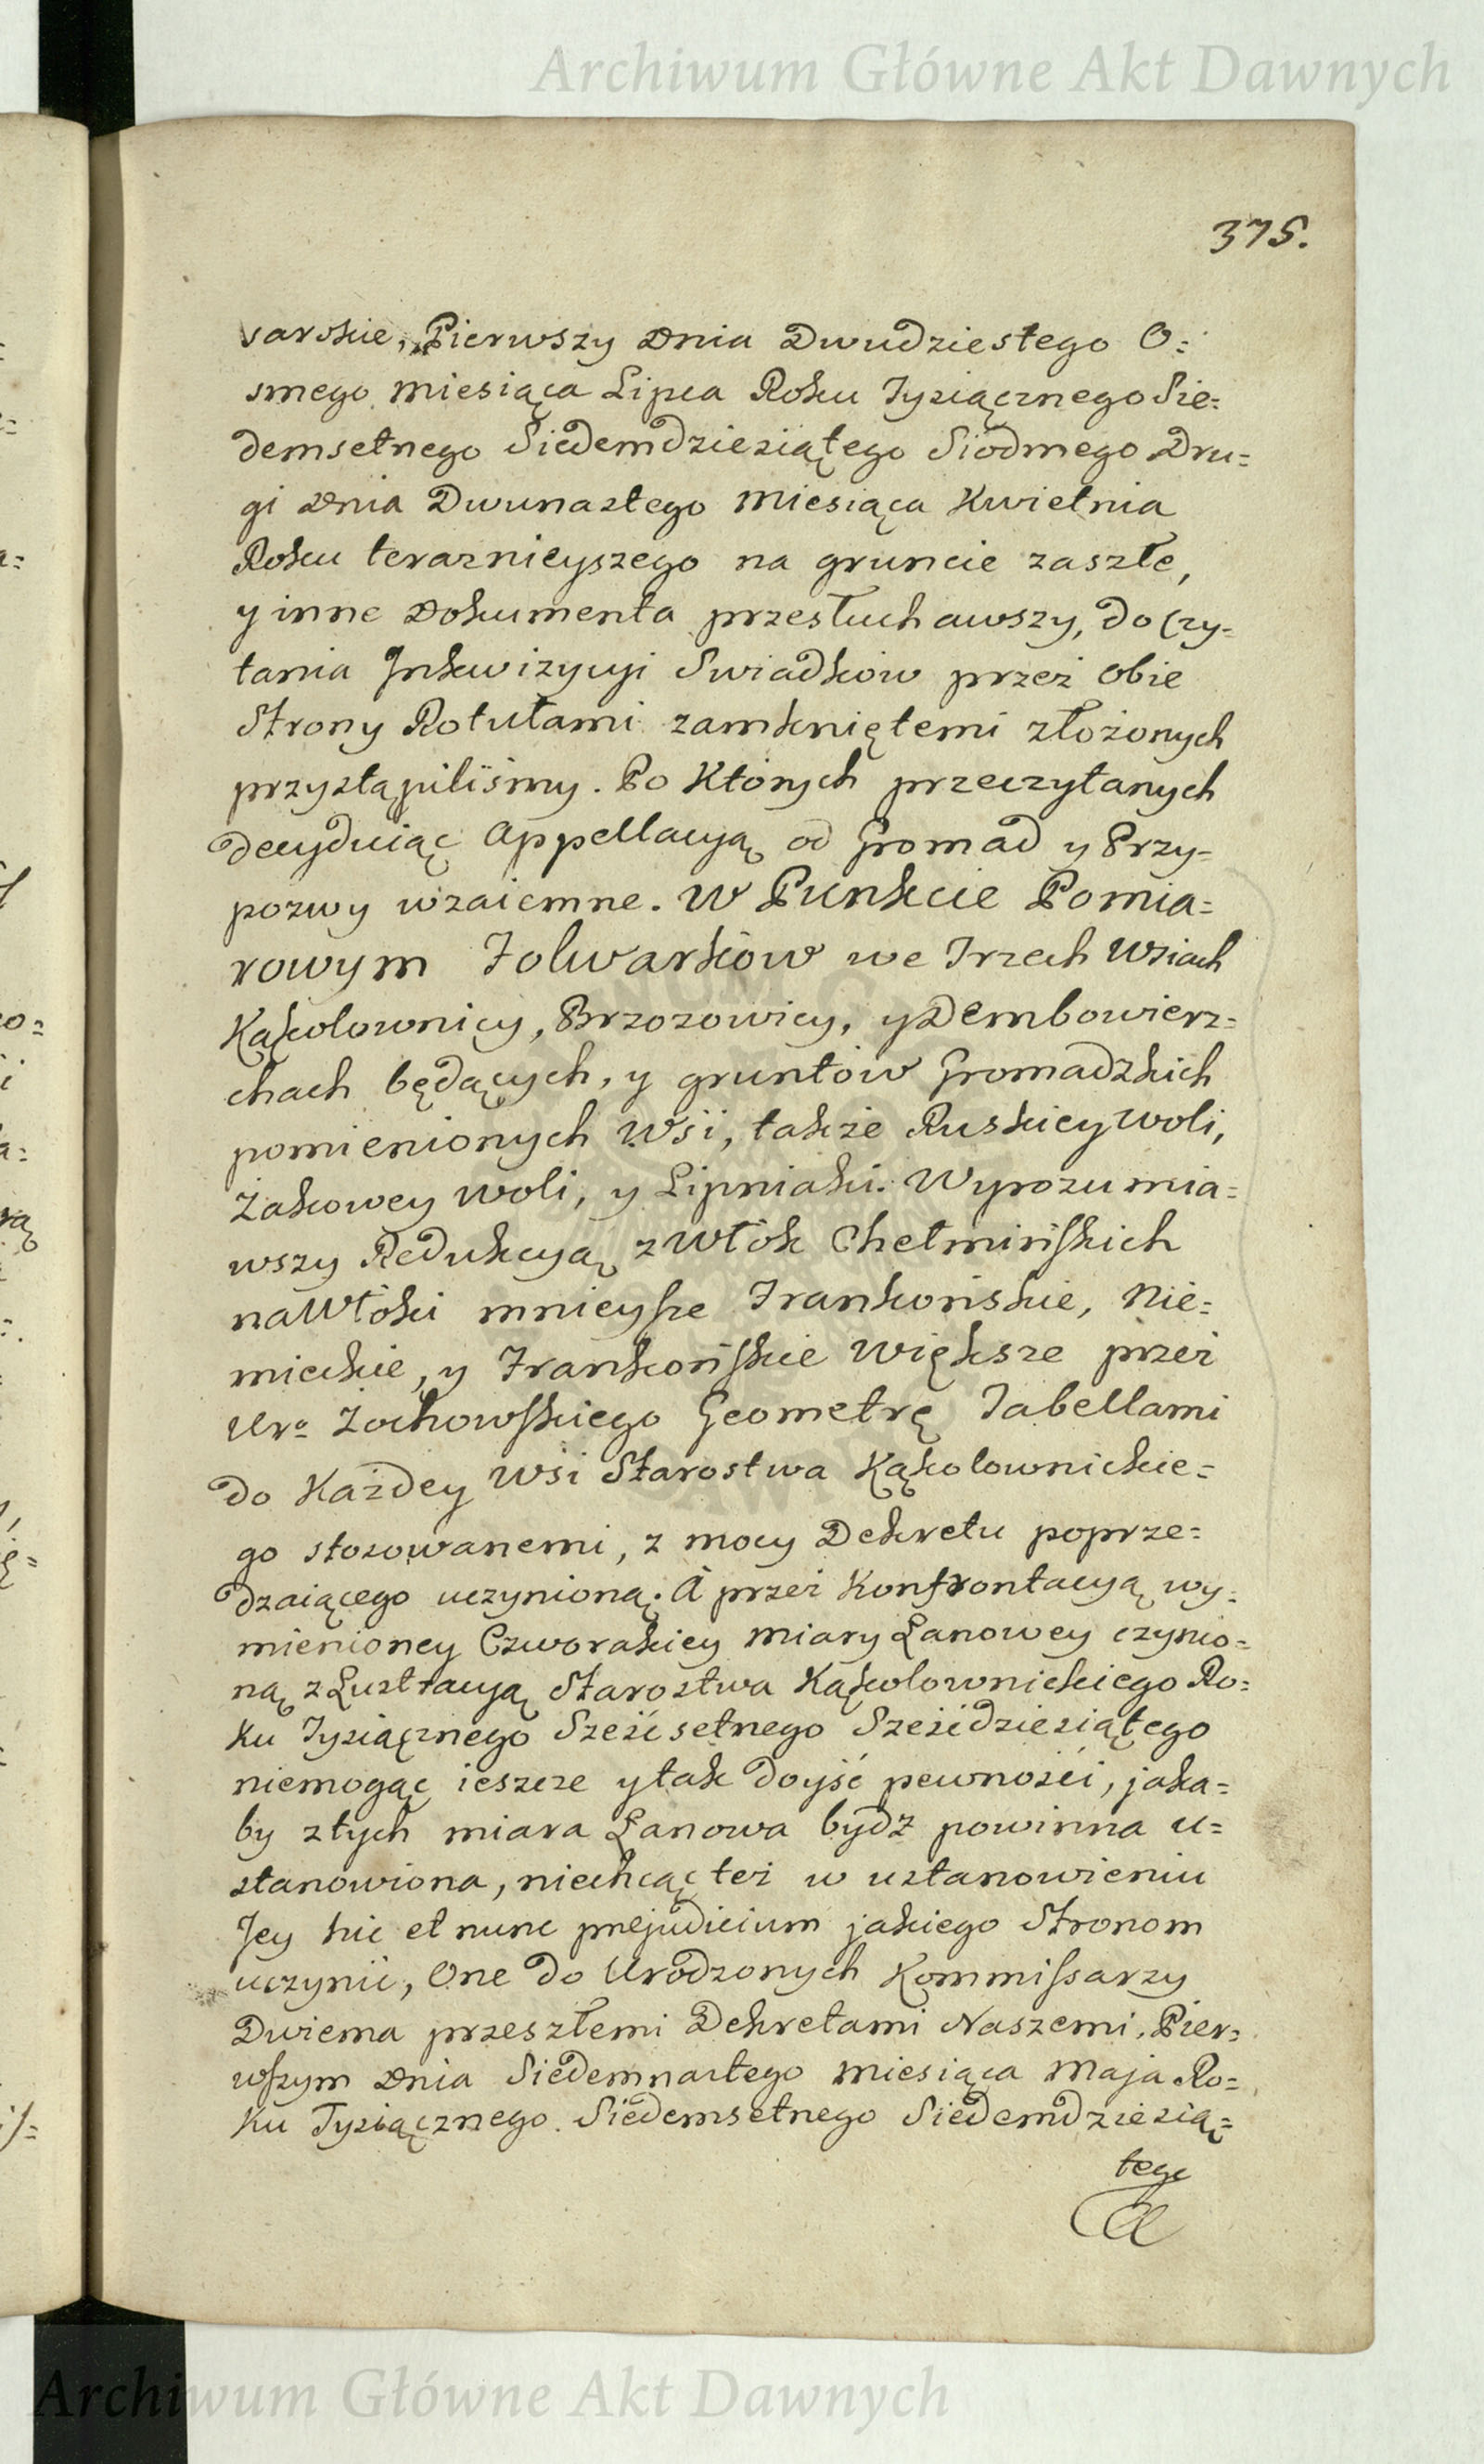 Archiwum Główne Akt Dawnych
375.
sarskie, Pierwszy Dnia Dwudziestego O=
smego miesiąca Lipca Roku Tysiącznego Sie=
demsetnego Siedemdziesiątego Siodmego Dru=
gi Dnia Dwunastego miesiąca Kwietnia
Roku teraznieyszego na gruncie zaszłe,
y inne Dokumenta przesłuchawszy, do Czy=
tania Inkwizycyi Swiadkow przez obie
Strony Rotułami zamkniętemi złożonych
przystąpiliśmy. Po Ktorych przeczytanych
decyduiąc Appellacyą od Gromad y Przy=
pozwy wzaiemne. W Punkcie Pomia=
rowym Folwarkow we Trzech Wsiach
Kąkolownicy, Brzozowicy, y Dembowierz=
chach będących, y gruntow Gromadzkich
pomienionych Wsi, także Ruskiey Woli,
Żakowey Woli, y Lipniaki. Wyrozumia=
wszy Redukcyą z Włok Chełmińskich
na Włoki mnieysze Frankońskie, Nie=
mieckie, y Frankońskie Większe przez
Uro Żochowskiego Geometrę Tabellami
do Każdey Wsi Starostwa Kąkolownickie=
go stosowanemi, z mocy Dekretu poprze=
dzaiącego uczynioną. A przez Konfrontacyą wy=
mienioney Czworakiey miary Łanowey czynio=
ną z Lustracyą Starostwa Kąkolownickiego Ro=
ku Tysiącznego Sześćsetnego Sześćdziesiątego
niemogąc ieszcze y tak doyść pewności, jaka=
by z tych miara Łanowa bydź powinna u=
stanowiona, niechcąc też w ustanowieniu
Jey hic et nunc prejudicium jakiego Stronom
uczynić, One do Urodzonych Kommissarzy
Dwiema przeszłemi Dekretami Naszemi, Pier=
wszym Dnia Siedemnastego miesiąca Maja Ro=
ku Tysiącznego Siedemsetnego Siedemdziesią=
tego
Archiwum Główne Akt Dawnych